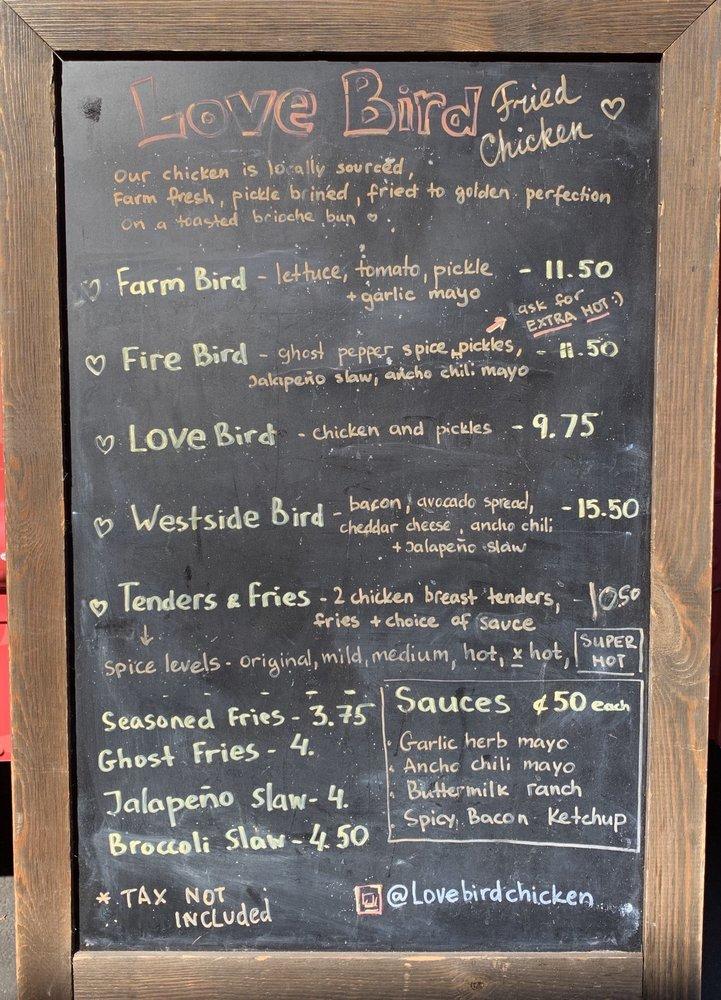 Love Bird Fried Chicken
Our chicken is locally sourced,
Farm fresh, pickle brined, fried to golden perfection
on a toasted brioche bun
Farm Bird - lettuce, tomato, pickle - 11.50
+ garlic mayo
ask for
EXTRA HOT :)
Fire Bird - ghost pepper spice, pickles, - 11.50
Jalapeño slaw, ancho chili mayo
Love Bird - chicken and pickles - 9.75
Westside Bird - bacon, avocado spread, - 15.50
cheddar cheese, ancho chili
+ Jalapeño slaw
Tenders & Fries - 2 chicken breast tenders, - 10.50
fries + choice of sauce
spice levels - original, mild, medium, hot, x hot, SUPER HOT
Seasoned Fries - 3.75
Ghost Fries - 4.
Jalapeño slaw - 4.
Broccoli Slaw - 4.50
Sauces ¢50 each
Garlic herb mayo
Ancho chili mayo
Buttermilk ranch
Spicy Bacon Ketchup
* TAX NOT
INCLUDED
@Lovebirdchicken